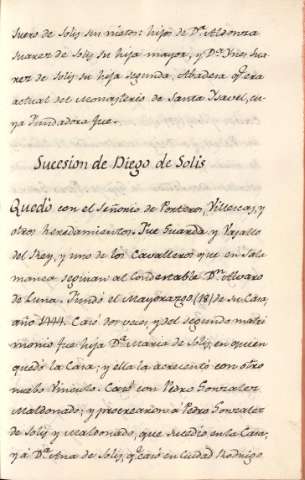 suero de Solis sus nietos: hija de Dª Aldonza
suarez de Solis su hija mayor, y Dª Ynes sua
rez de Solis su hija segunda, Abadesa q era
actual del Monasterio de Santa Ysavel, cu
ya fundadora fue.
Sucesion de Diego de Solis
Quedó con el señorio de Porteros, Villescas, y
otros heredamientos. Fue Guarda y Vasallo
del Rey, y uno de los Cavalleros que en Sala
manca seguian al Condestable Dn Alvaro
de Luna. Fundó el Mayorazgo (18) de su Casa,
año 1444. Casó dos veces, y del segundo matri
monio fue hija Dª Maria de Solis, en quien
quedó la Casa; y ella la acrecentó con otro
nuebo vinculo. Casó con Pedro Gonzalez
Maldonado; y procrearon á Pedro Gonzalez
de Solis y Maldonado, que sucedio en la Casa,
y á Dª Ana de Solis, q casó en Ciudad Rodrigo